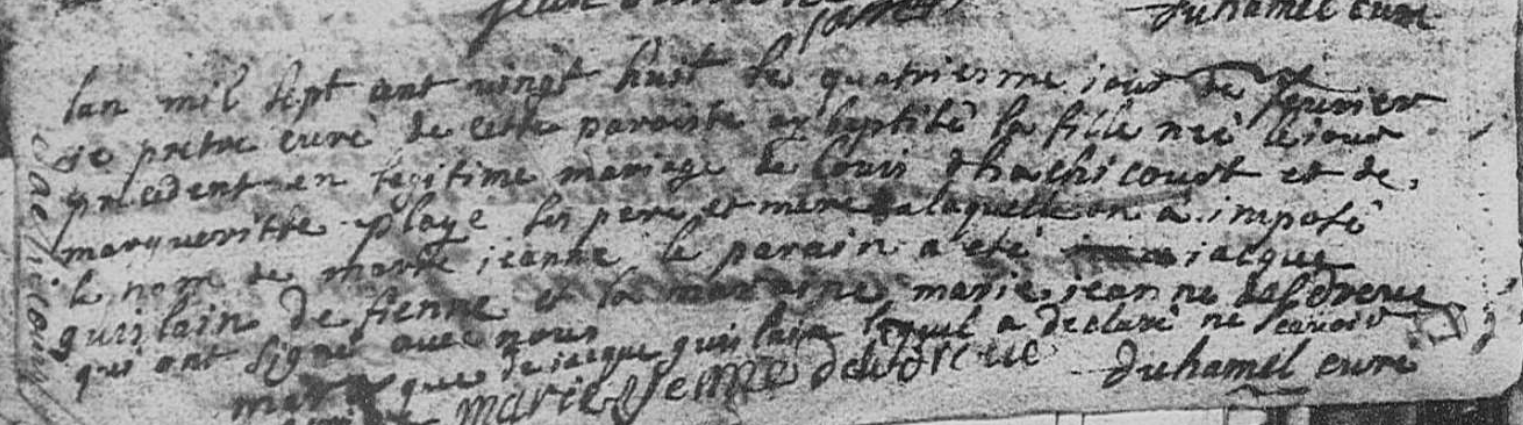 duhamel curé
lan mil sept cent vingt huit le quatriesme jour de feurier
je pretre curé de cette paroisse ay baptisé la fille née le jour
precedent en legitime mariage de louis d'hachicourt et de
margueritte playe ses pere et mere a laquelle on a imposé
le nom de marie jeanne le parain a eté jacque
guislain de fienne et la maraine marie jeanne
qui ont signé avec nous
marque de jacque guislain lequel a declaré ne scavoir
marie jenne duhamel curé